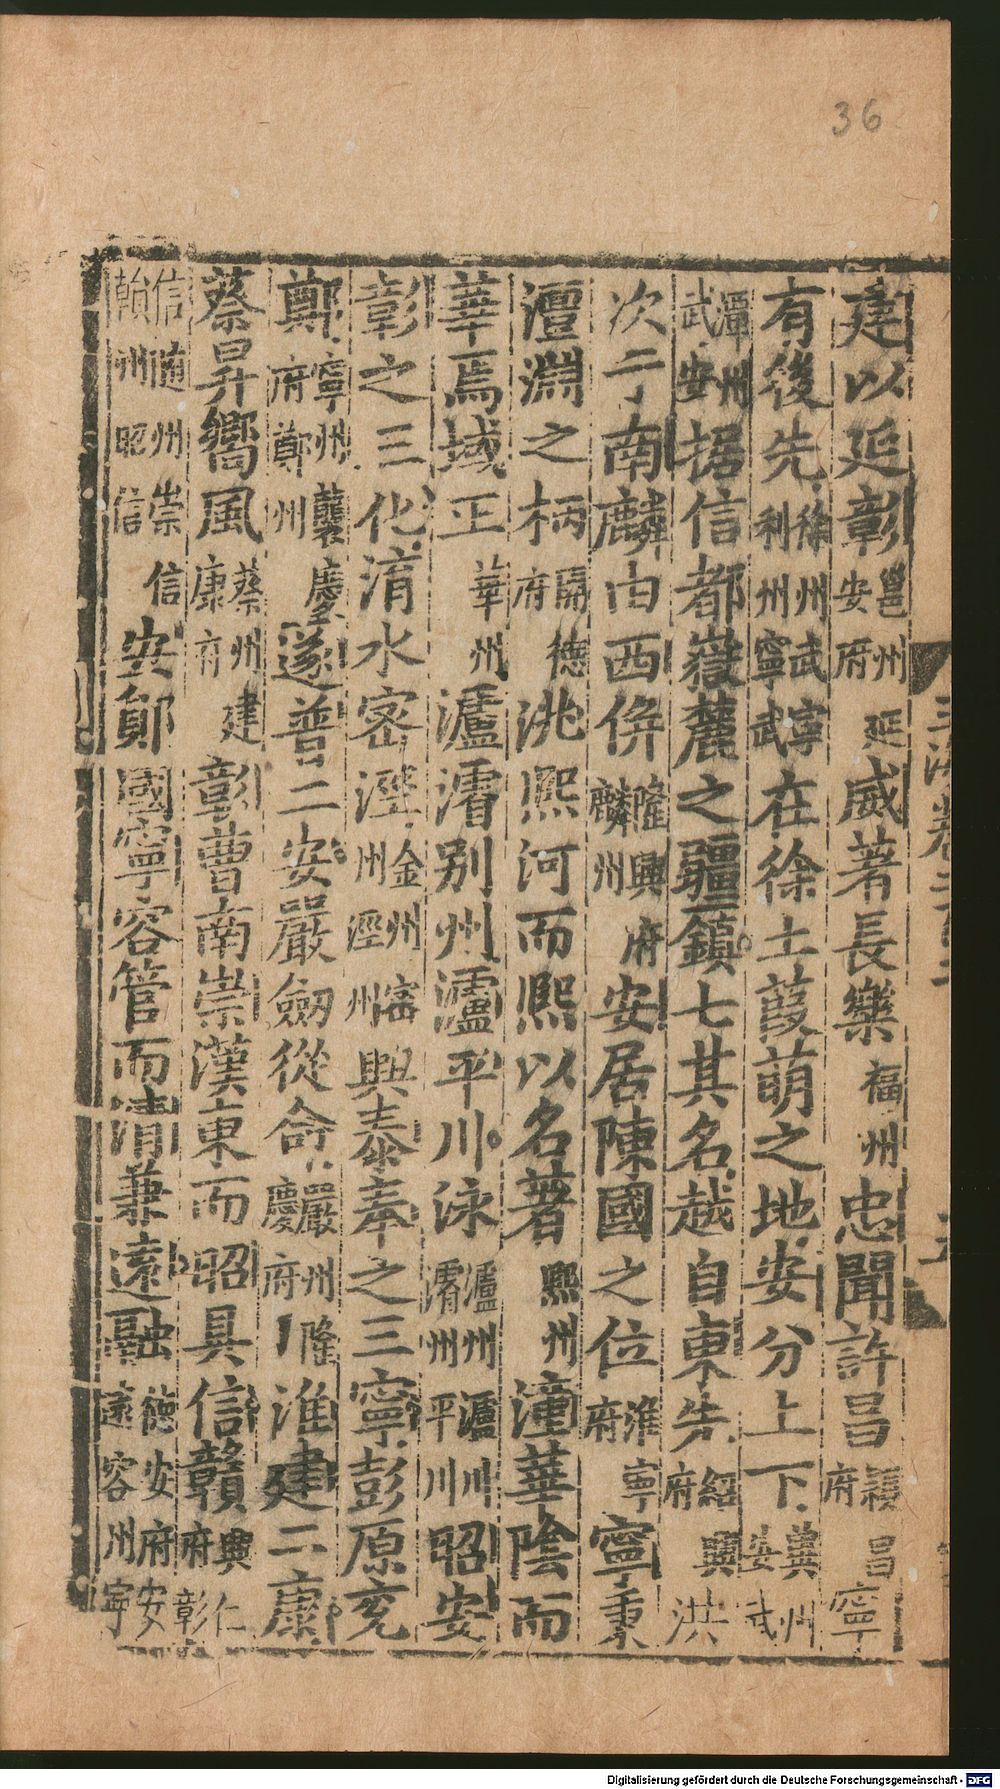 36
建以延彰邕州延安府威著長樂福州忠聞許昌穎昌府寧
有後先徐州武寧利州寧武在徐土葭萌之地安分上下冀州安武
潭州武安据信都嶽麓之疆鎮七其名越自東先紹興府洪
次于南麟由西併隆興府麟州安居陳國之位淮寧府寧秉
澶淵之柄開德府洮熙河而熙以名著熙州潼華陰而
華焉域正華州瀘濬別州瀘平川泳瀘州瀘川濬州平川昭安
彰之三化淯水密涇金州密州涇州興泰奉之三寧彭原兗
鄭寧州襲慶府鄭州遂普二安嚴劒從命嚴州隆慶府淮建二康
蔡昇嚮風蔡州建康府彰曹南崇漢東而昭具信贛興仁府彰
信随州崇信贛州昭信安鄖國寧容管而清兼遠融德安府安遠容州寧
三海卷之
Digitalisierung gefördert durch die Deutsche Forschungsgemeinschaft - DFG